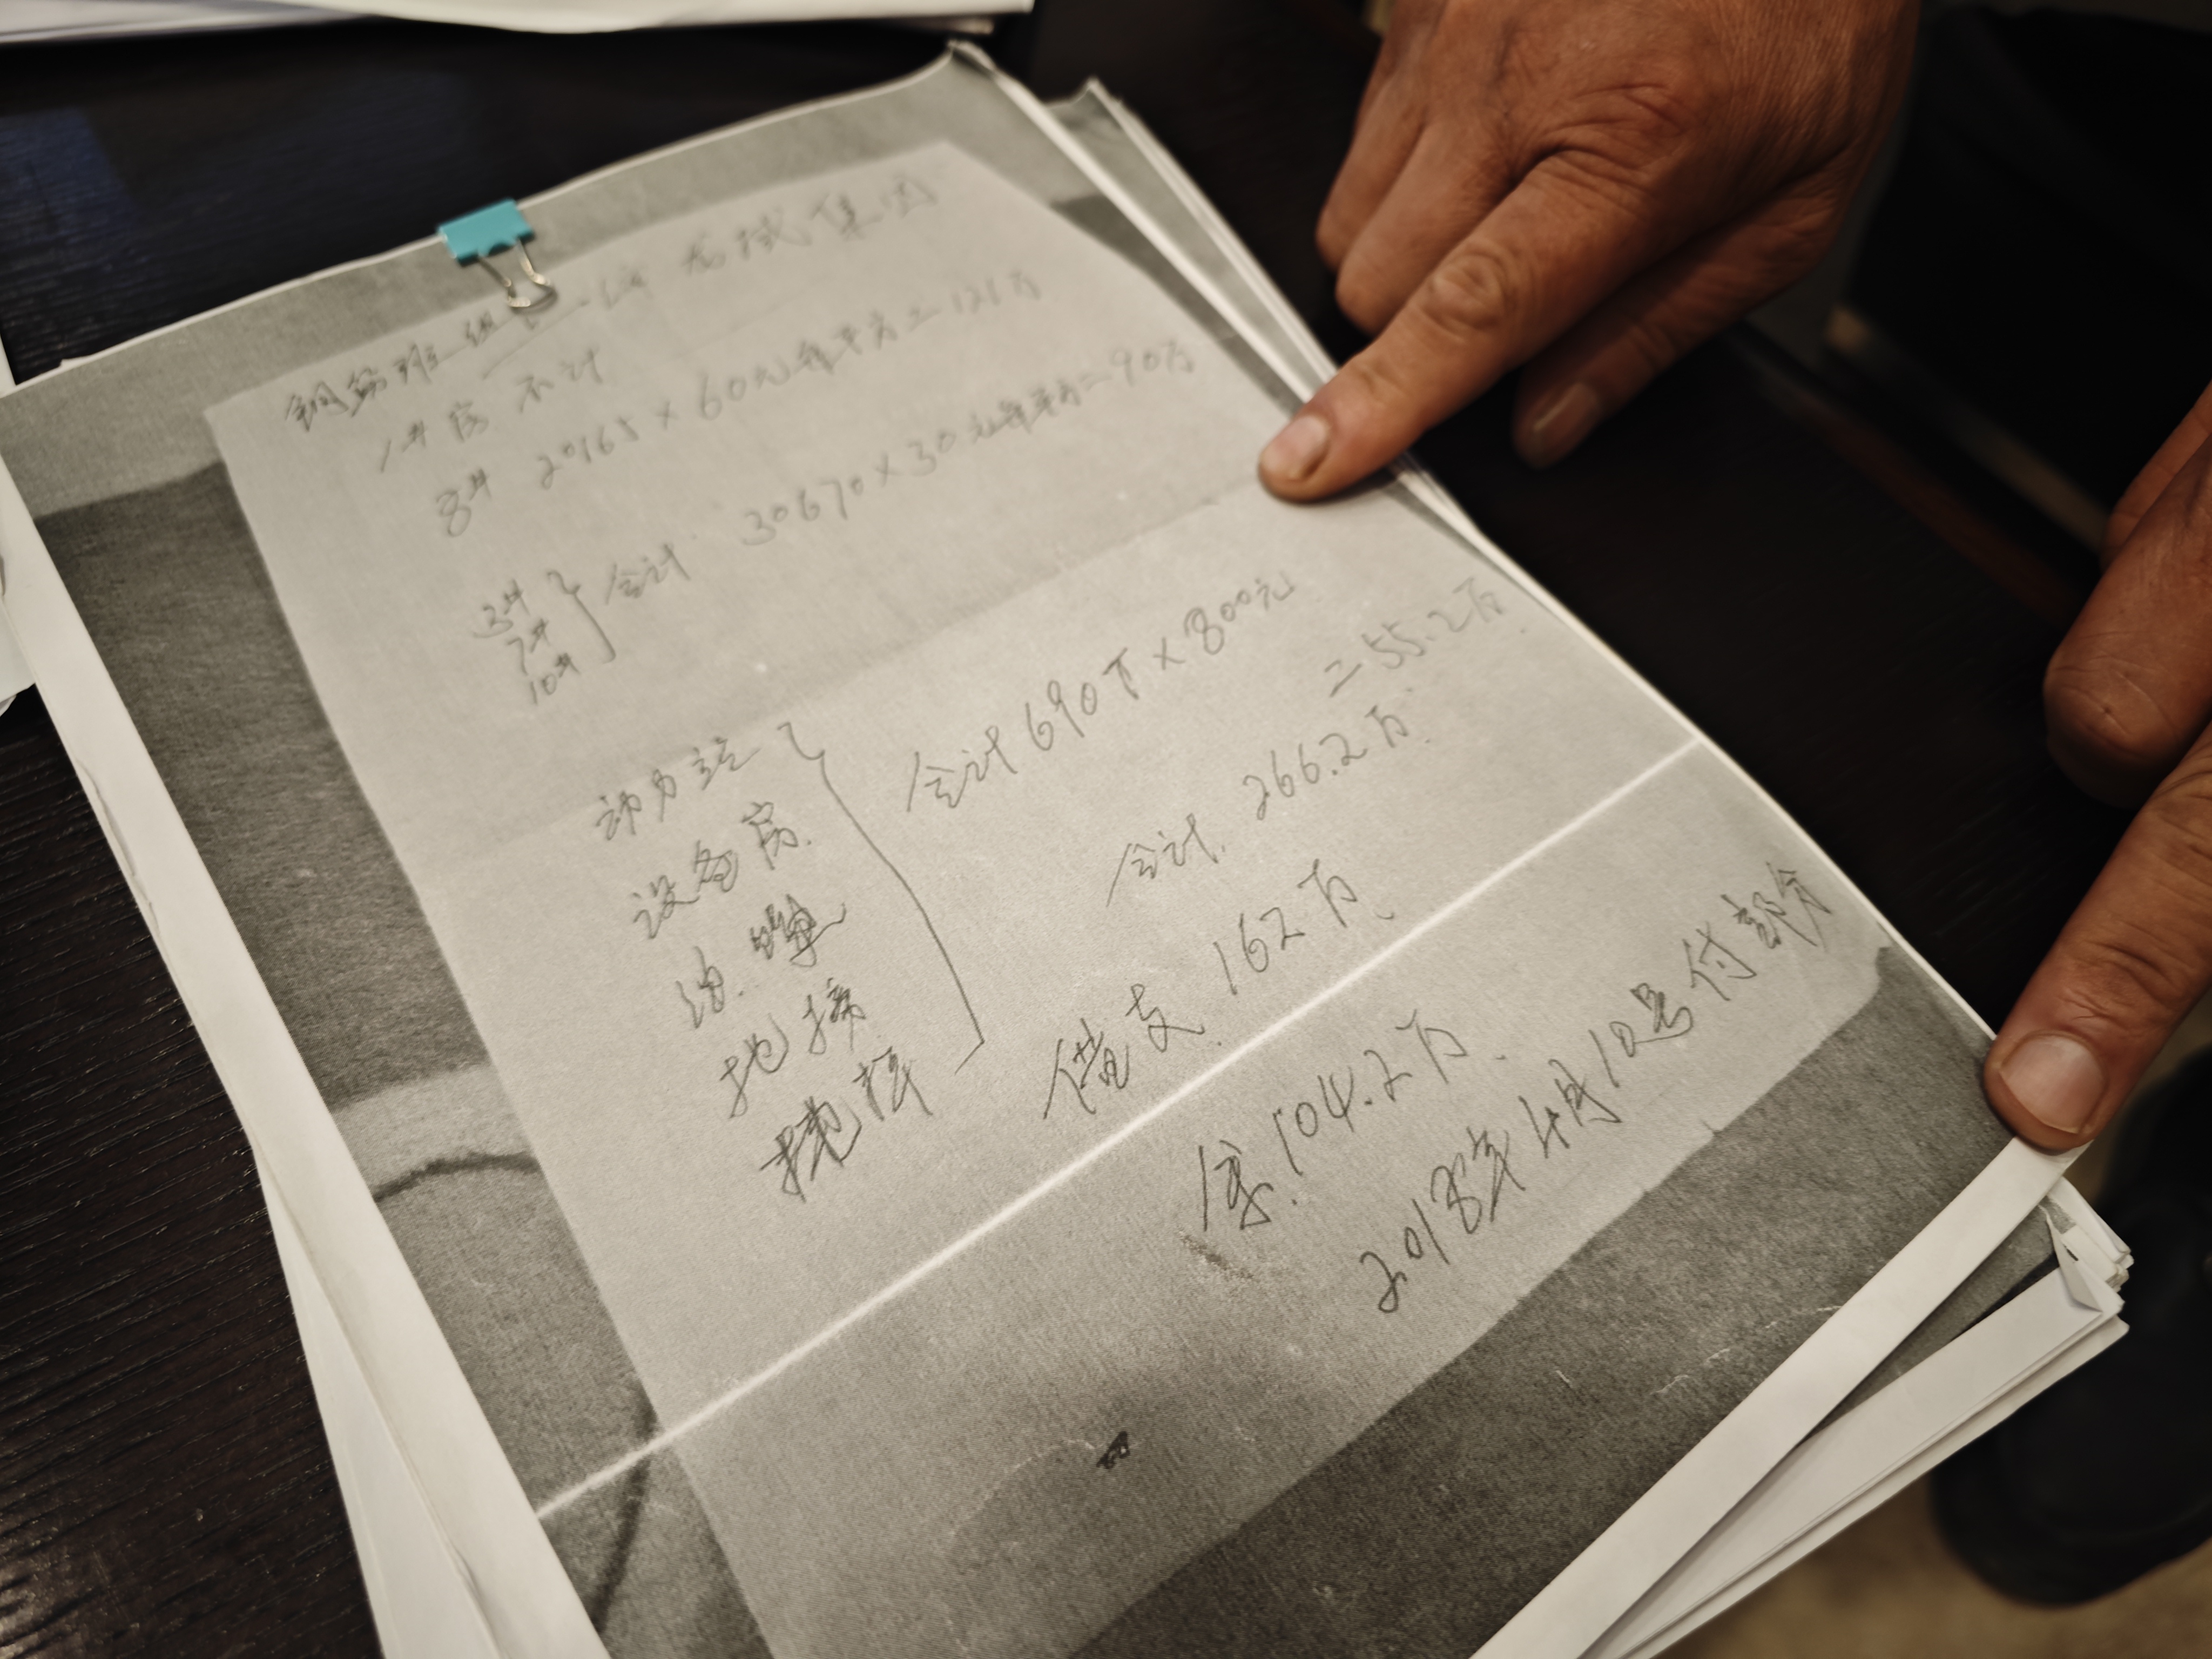 钢筋班组 龙城集团
1#房 不计
8# 20165×60元每平方=121万
3#
7#
10#
合计 30670×30元每平方=90万
动力站
设备房
油罐
地磅
合计690T×800元
=55.2万
合计 266.2万
借支 162万
余.104.2万
2018年4月10号付部分